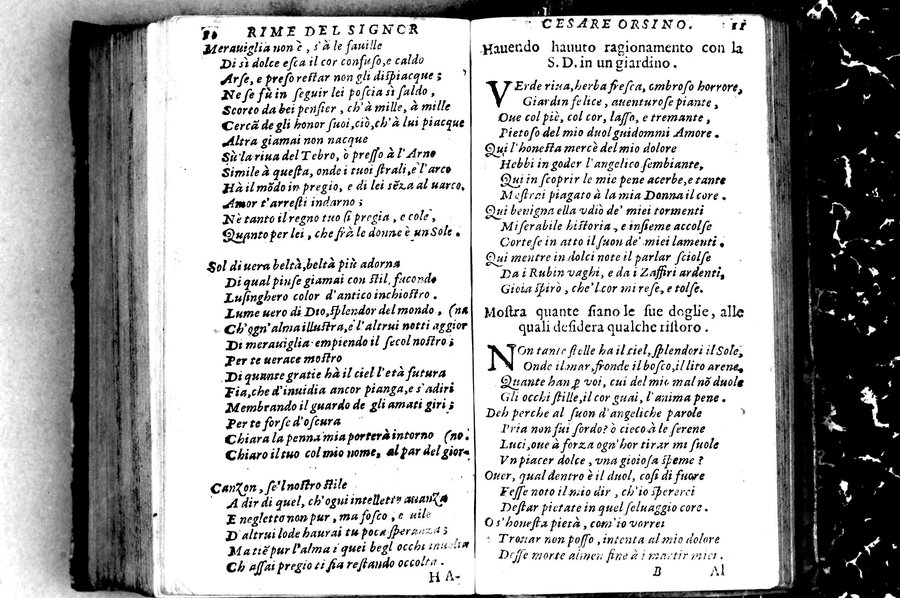 10 RIME DEL SIGNOR
Merauiglia non è, s'à le fauille
Di sì dolce esca il cor confuso, e caldo
Arse, e preso restar non gli dispiacque;
Ne se fù in seguir lei poscia sì saldo,
Scorto da bei pensier, ch'à mille, à mille
Cercã de gli honor suoi, ciò, ch'à lui piacque
Altra giamai non nacque
Sù la riua del Tebro, ò presso à l'Arno
Simile à questa, onde i tuoi strali, e l'arco
Hà il mõdo in pregio, e di lei sẽza al uarco,
Amor t'arresti indarno;
Nè tanto il regno tuo si pregia, e cole,
Quanto per lei, che frà le donne è un Sole.
Sol di uera beltà, beltà più adorna
Di qual pinse giamai con stil facondo
Lusinghero color d'antico inchiostro.
Lume uero di Dio, splendor del mondo, (na
Ch'ogn'alma illustra, e l'altrui notti aggior
Di merauiglia empiendo il secol nostro;
Per te uerace mostro
Di quante gratie hà il ciel l'età futura
Fia, che d'inuidia ancor pianga, e s'adiri
Membrando il guardo de gli amati giri;
Per te forse d'oscura
Chiara la penna mia porterà intorno (no.
Chiaro il tuo col mio nome, al par del gior-
Canzon, se'l nostro stile
A dir di quel, ch'ogni intelletto auanza
E negletto non pur, ma fosco, e uile
D'altrui lode haurai tu poca speranza;
Ma tiẽ pur l'alma i quei begl occhi inuolta
Ch assai pregio ti fia restando occolta.
H A-
CESARE ORSINO. 11
Hauendo hauuto ragionamento con la
S. D. in un giardino.
VErde riua, herba fresca, ombroso horrore,
Giardin felice, auenturose piante,
Oue col piè, col cor, lasso, e tremante,
Pietoso del mio duol guidommi Amore.
Qui l'honesta mercè del mio dolore
Hebbi in goder l'angelico sembiante,
Qui in scoprir le mie pene acerbe, e tante
Mostrai piagato à la mia Donna il core.
Qui benigna ella vdìo de' miei tormenti
Miserabile historia, e insieme accolse
Cortese in atto il suon de' miei lamenti.
Qui mentre in dolci note il parlar sciolse
Da i Rubin vaghi, e da i Zaffiri ardenti,
Gioia spirò, che'l cor mi rese, e tolse.
Mostra quante siano le sue doglie, alle
quali desidera qualche ristoro.
NOn tante stelle ha il ciel, splendori il Sole,
Onde il mar, fronde il bosco, il lito arene,
Quante han p voi, cui del mio mal nõ duole
Gli occhi stille, il cor guai, l'anima pene.
Deh perche al suon d'angeliche parole
Pria non fui sordo? ò cieco à le serene
Luci, oue à forza ogn'hor tirar mi suole
Vn piacer dolce, vna gioiosa speme?
Ouer, qual dentro è il duol, così di fuore
Fesse noto il mio dir, ch'io spererei
Destar pietate in quel seluaggio core.
O s'honesta pietà, com'io vorrei
Trouar non posso, intenta al mio dolore
Desse morte almen fine à i martir miei.
B Al